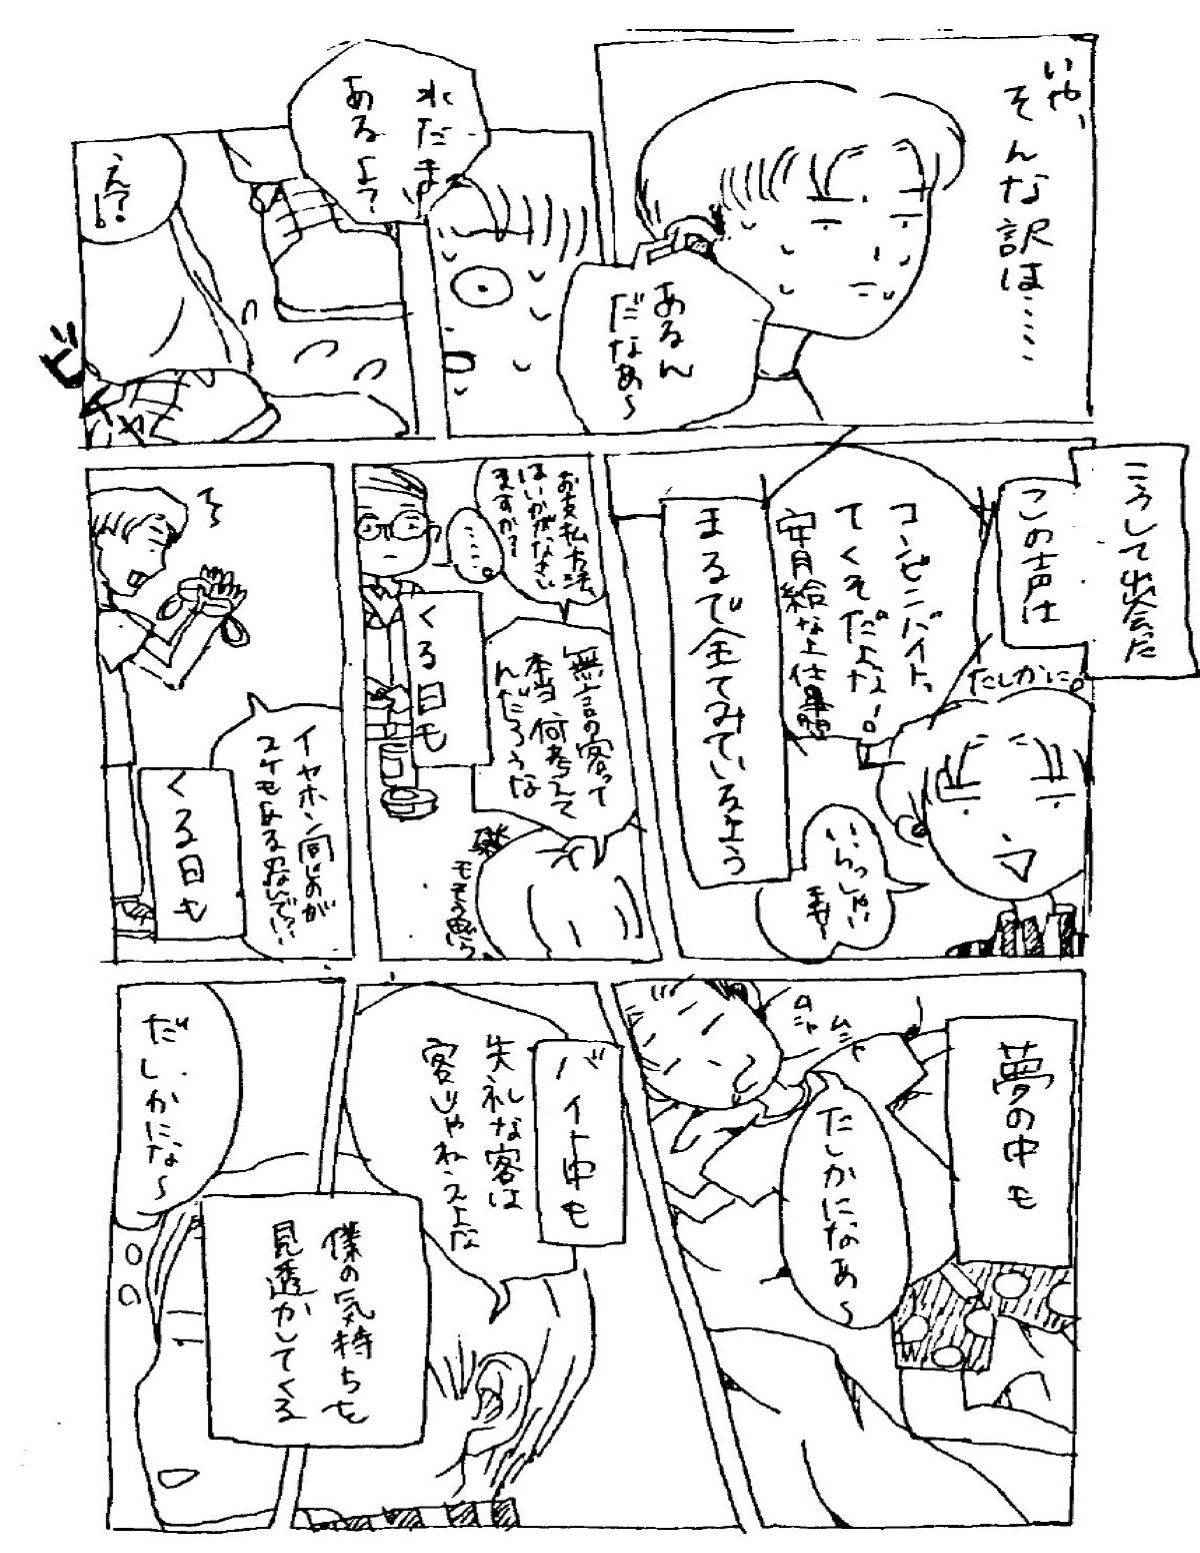 いや、
そんな訳は……
あるん
だなぁ〜
水たまり
あるよ?
え?
ビ
チャ
こうして出会った
この声は
コンビニバイトっ
てくそだよな!
安月給な上仕事
まるで全てみているよう
たしかに。
いらっしゃい
ませー
お支払方法
はいかがなさい
ますか?
……。
無言の客って
本当、何考えて
んだろうな
くる日も
そ〜
イヤホン同じのが
くる日も
夢の中も
ムニャ
ムニャ
たしかになぁ〜
バイト中も
失礼な客は
客じゃねえよな
僕の気持ちを
見透かしてくる
だしかにな〜